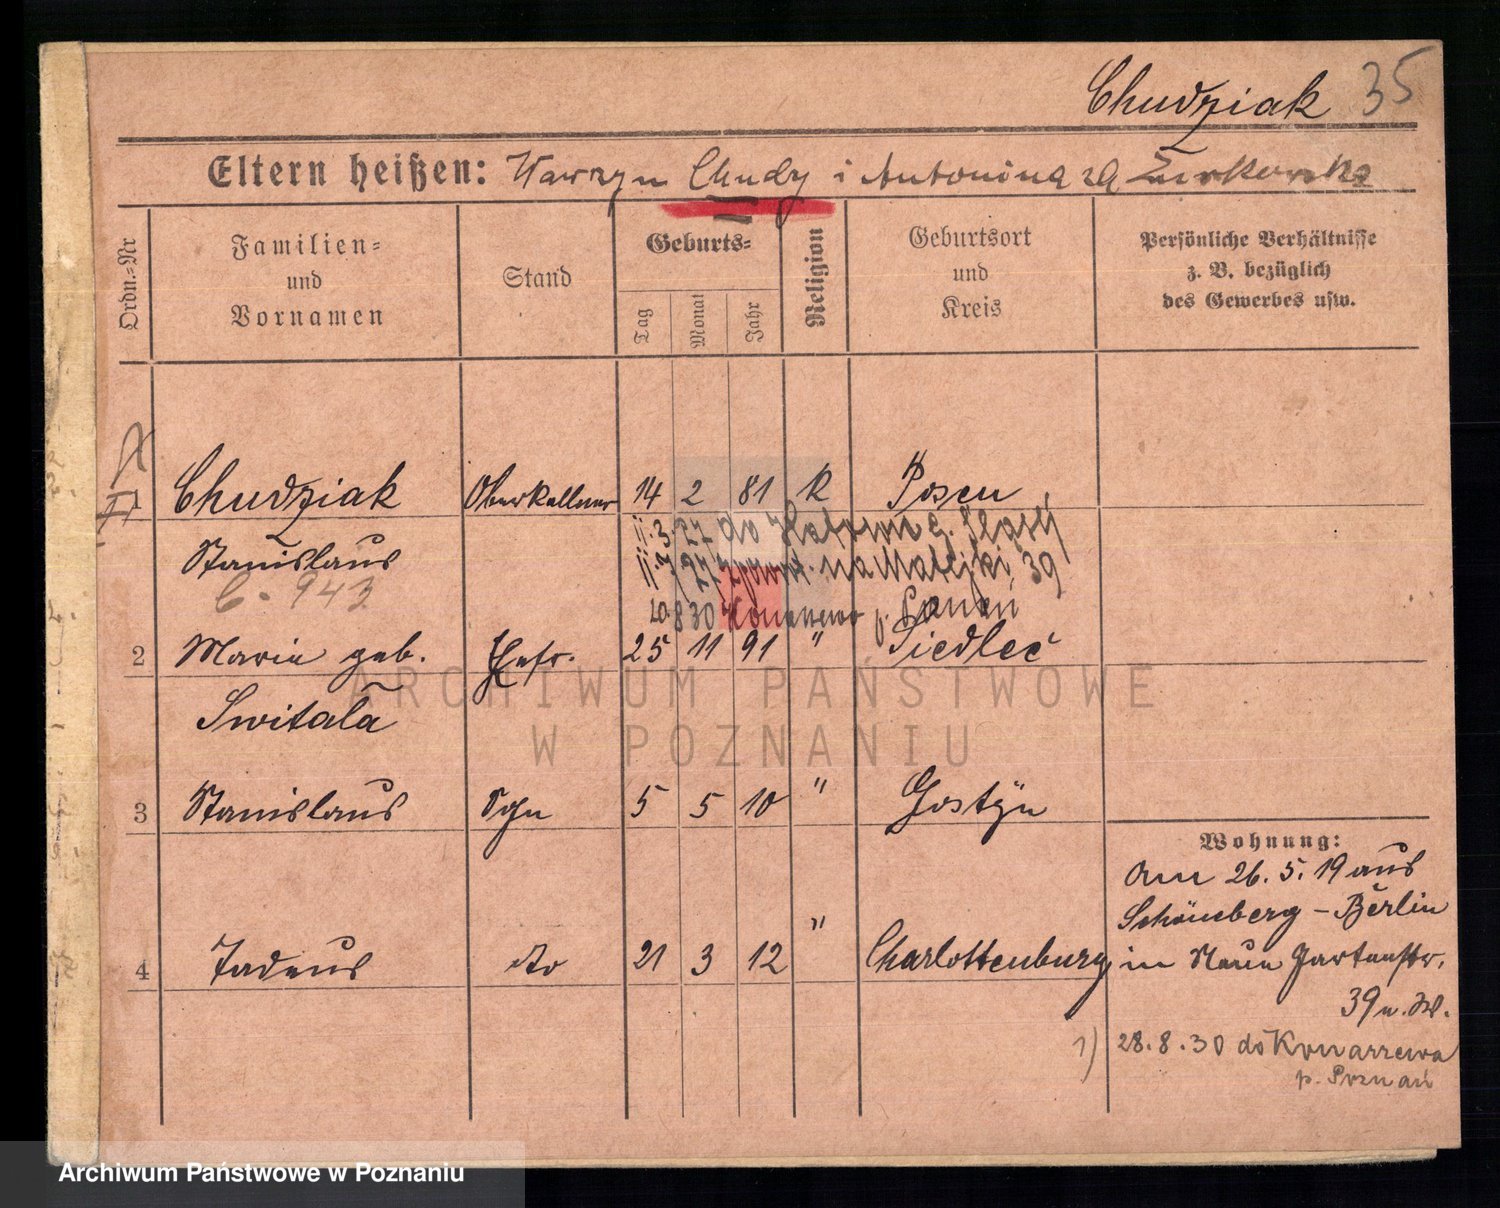 Chudziak 35
Eltern heißen: Wawrzyn Chudy i Antonina
Ordn.-Nr
Familien-
und
Vornamen
Stand
Geburts-
Tag
Monat
Jahr
Religion
Geburtsort
und
Kreis
Persönliche Verhältnisse
z. B. bezüglich
des Gewerbes usw.
1 Chudziak Oberkellner 14 2 81 K Posen
11.3.27 do
Stanislaus
11.7.27 na Matejki 39
C. 943
20.8.30 Konarzewo p. Poznań
2 Maria geb. Ehefr. 25 11 91 " Siedleć
Switala
3 Stanislaus Sohn 5 5 10 " Gostÿn
Wohnung:
Am 26.5.19 aus
Schöneberg – Berlin
4 Tadeus do 21 3 12 " Charlottenburg in Neue Gartenstr.
39 u. W.
1) 28.8.30 do Konarzewa
p. Poznań
ARCHIWUM PAŃSTWOWE
W POZNANIU
Archiwum Państwowe w Poznaniu